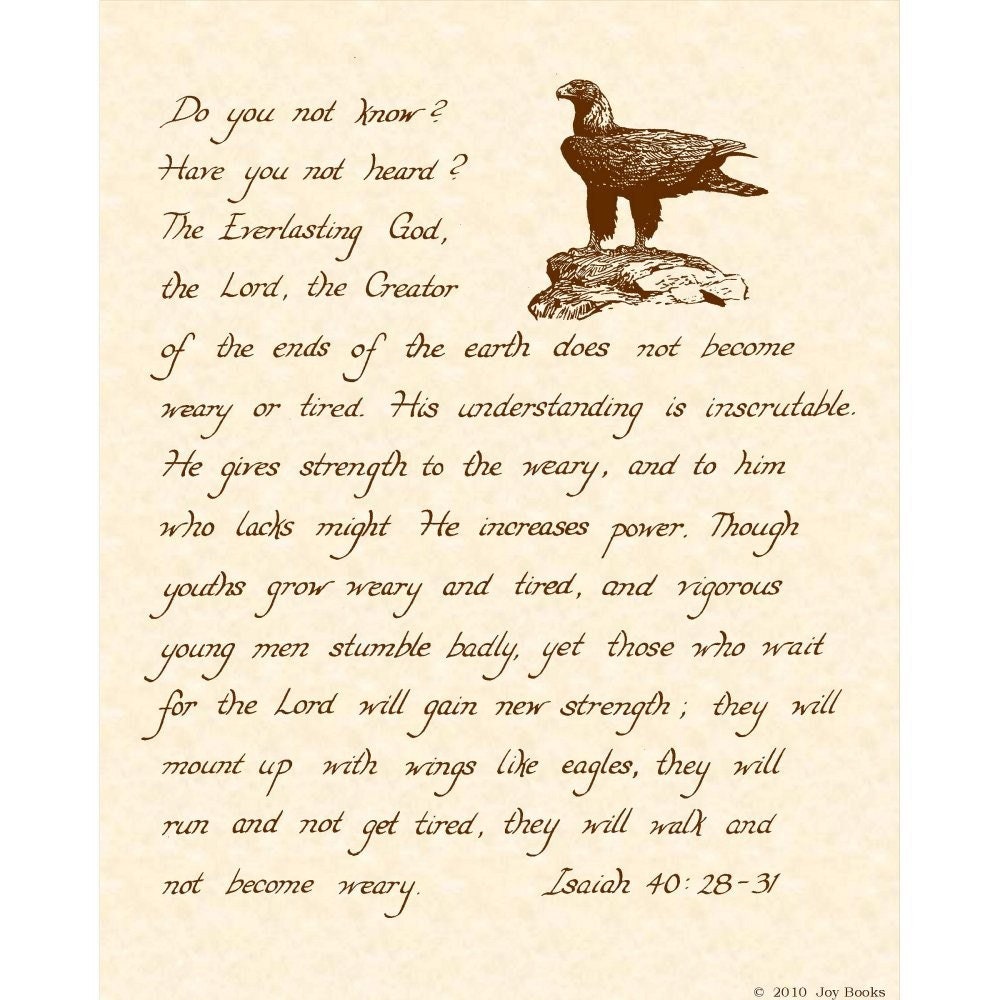 Do you not know?
Have you not heard?
The Everlasting God,
the Lord, the Creator
of the ends of the earth does not become
weary or tired. His understanding is inscrutable.
He gives strength to the weary, and to him
who lacks might He increases power. Though
youths grow weary and tired, and vigorous
young men stumble badly, yet those who wait
for the Lord will gain new strength; they will
mount up with wings like eagles, they will
run and not get tired, they will walk and
not become weary. Isaiah 40:28-31
© 2010 Joy Books